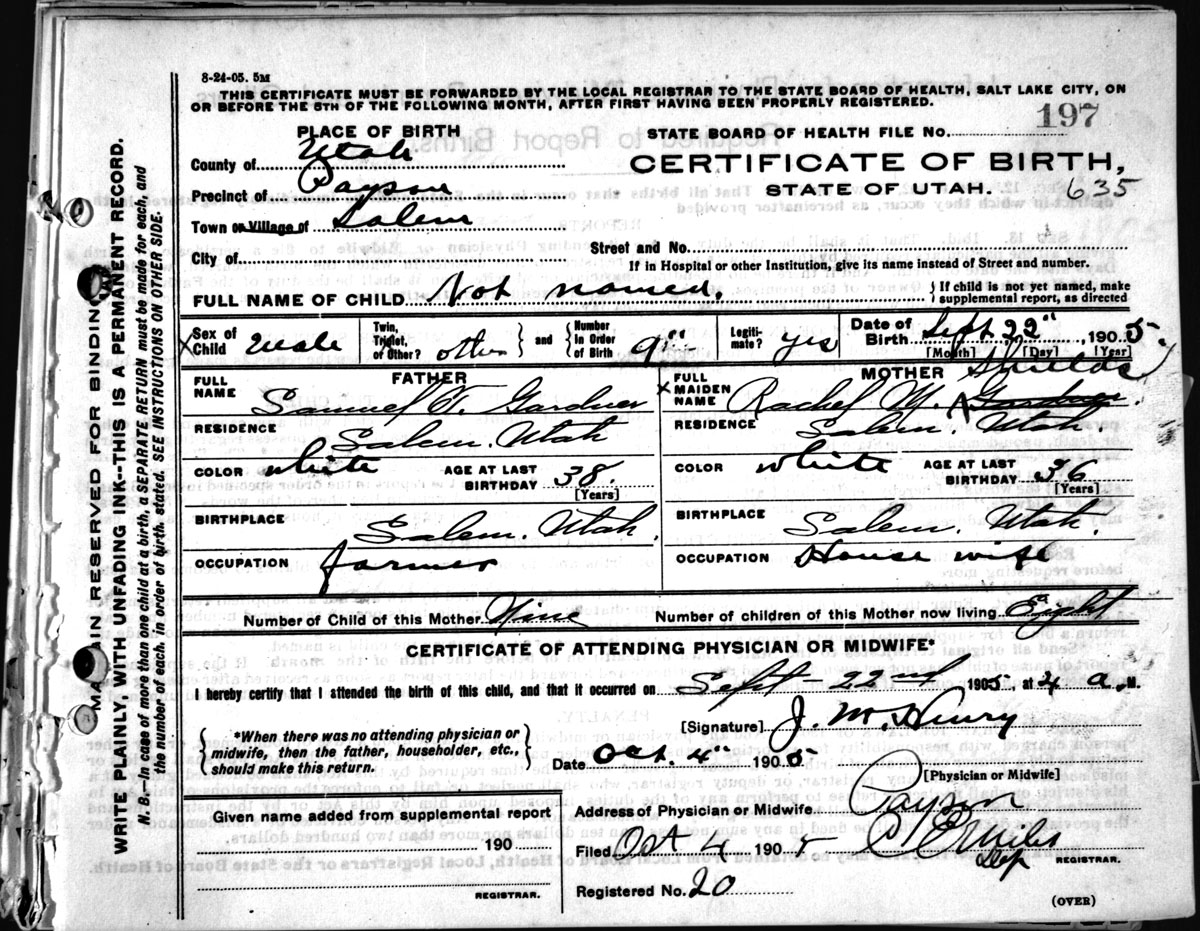 8-24-05. 5M
THIS CERTIFICATE MUST BE FORWARDED BY THE LOCAL REGISTRAR TO THE STATE BOARD OF HEALTH, SALT LAKE CITY, ON
OR BEFORE THE 5TH OF THE FOLLOWING MONTH, AFTER FIRST HAVING BEEN PROPERLY REGISTERED.
PLACE OF BIRTH
County of Utah
Precinct of Payson
Town or Village of Salem
City of
STATE BOARD OF HEALTH FILE NO. 197
CERTIFICATE OF BIRTH,
STATE OF UTAH. 635
Street and No.
If in Hospital or other Institution, give its name instead of Street and number.
FULL NAME OF CHILD Not named. If child is not yet named, make
supplemental report, as directed
Sex of Child Male
Twin, Triplet, or Other? other and Number in Order of Birth 9"
Legitimate? yes
Date of Birth Sept. 22" 1905
[Month] [Day] [Year]
FATHER
FULL NAME Samuel W. Gardner
RESIDENCE Salem. Utah
COLOR white AGE AT LAST BIRTHDAY 38.
[Years]
BIRTHPLACE Salem. Utah.
OCCUPATION farmer
MOTHER
FULL MAIDEN NAME Rachel M. Gardner Shields
RESIDENCE Salem. Utah.
COLOR white AGE AT LAST BIRTHDAY 36
[Years]
BIRTHPLACE Salem. Utah.
OCCUPATION House wife
Number of Child of this Mother Nine Number of children of this Mother now living Eight
CERTIFICATE OF ATTENDING PHYSICIAN OR MIDWIFE*
I hereby certify that I attended the birth of this child, and that it occurred on Sept - 22nd 1905, at 4 a. M.
*When there was no attending physician or
midwife, then the father, householder, etc.,
should make this return.
[Signature] J. M. Henry
Date Oct. 4" 1905
[Physician or Midwife]
Given name added from supplemental report
190
REGISTRAR.
Address of Physician or Midwife Payson
Filed Oct 4 1905 Miles
Dep REGISTRAR.
Registered No. 20
(OVER)
MARGIN RESERVED FOR BINDING
WRITE PLAINLY, WITH UNFADING INK--THIS IS A PERMANENT RECORD.
N. B.--In case of more than one child at a birth, a SEPARATE RETURN must be made for each, and
the number of each, in order of birth, stated. SEE INSTRUCTIONS ON OTHER SIDE.